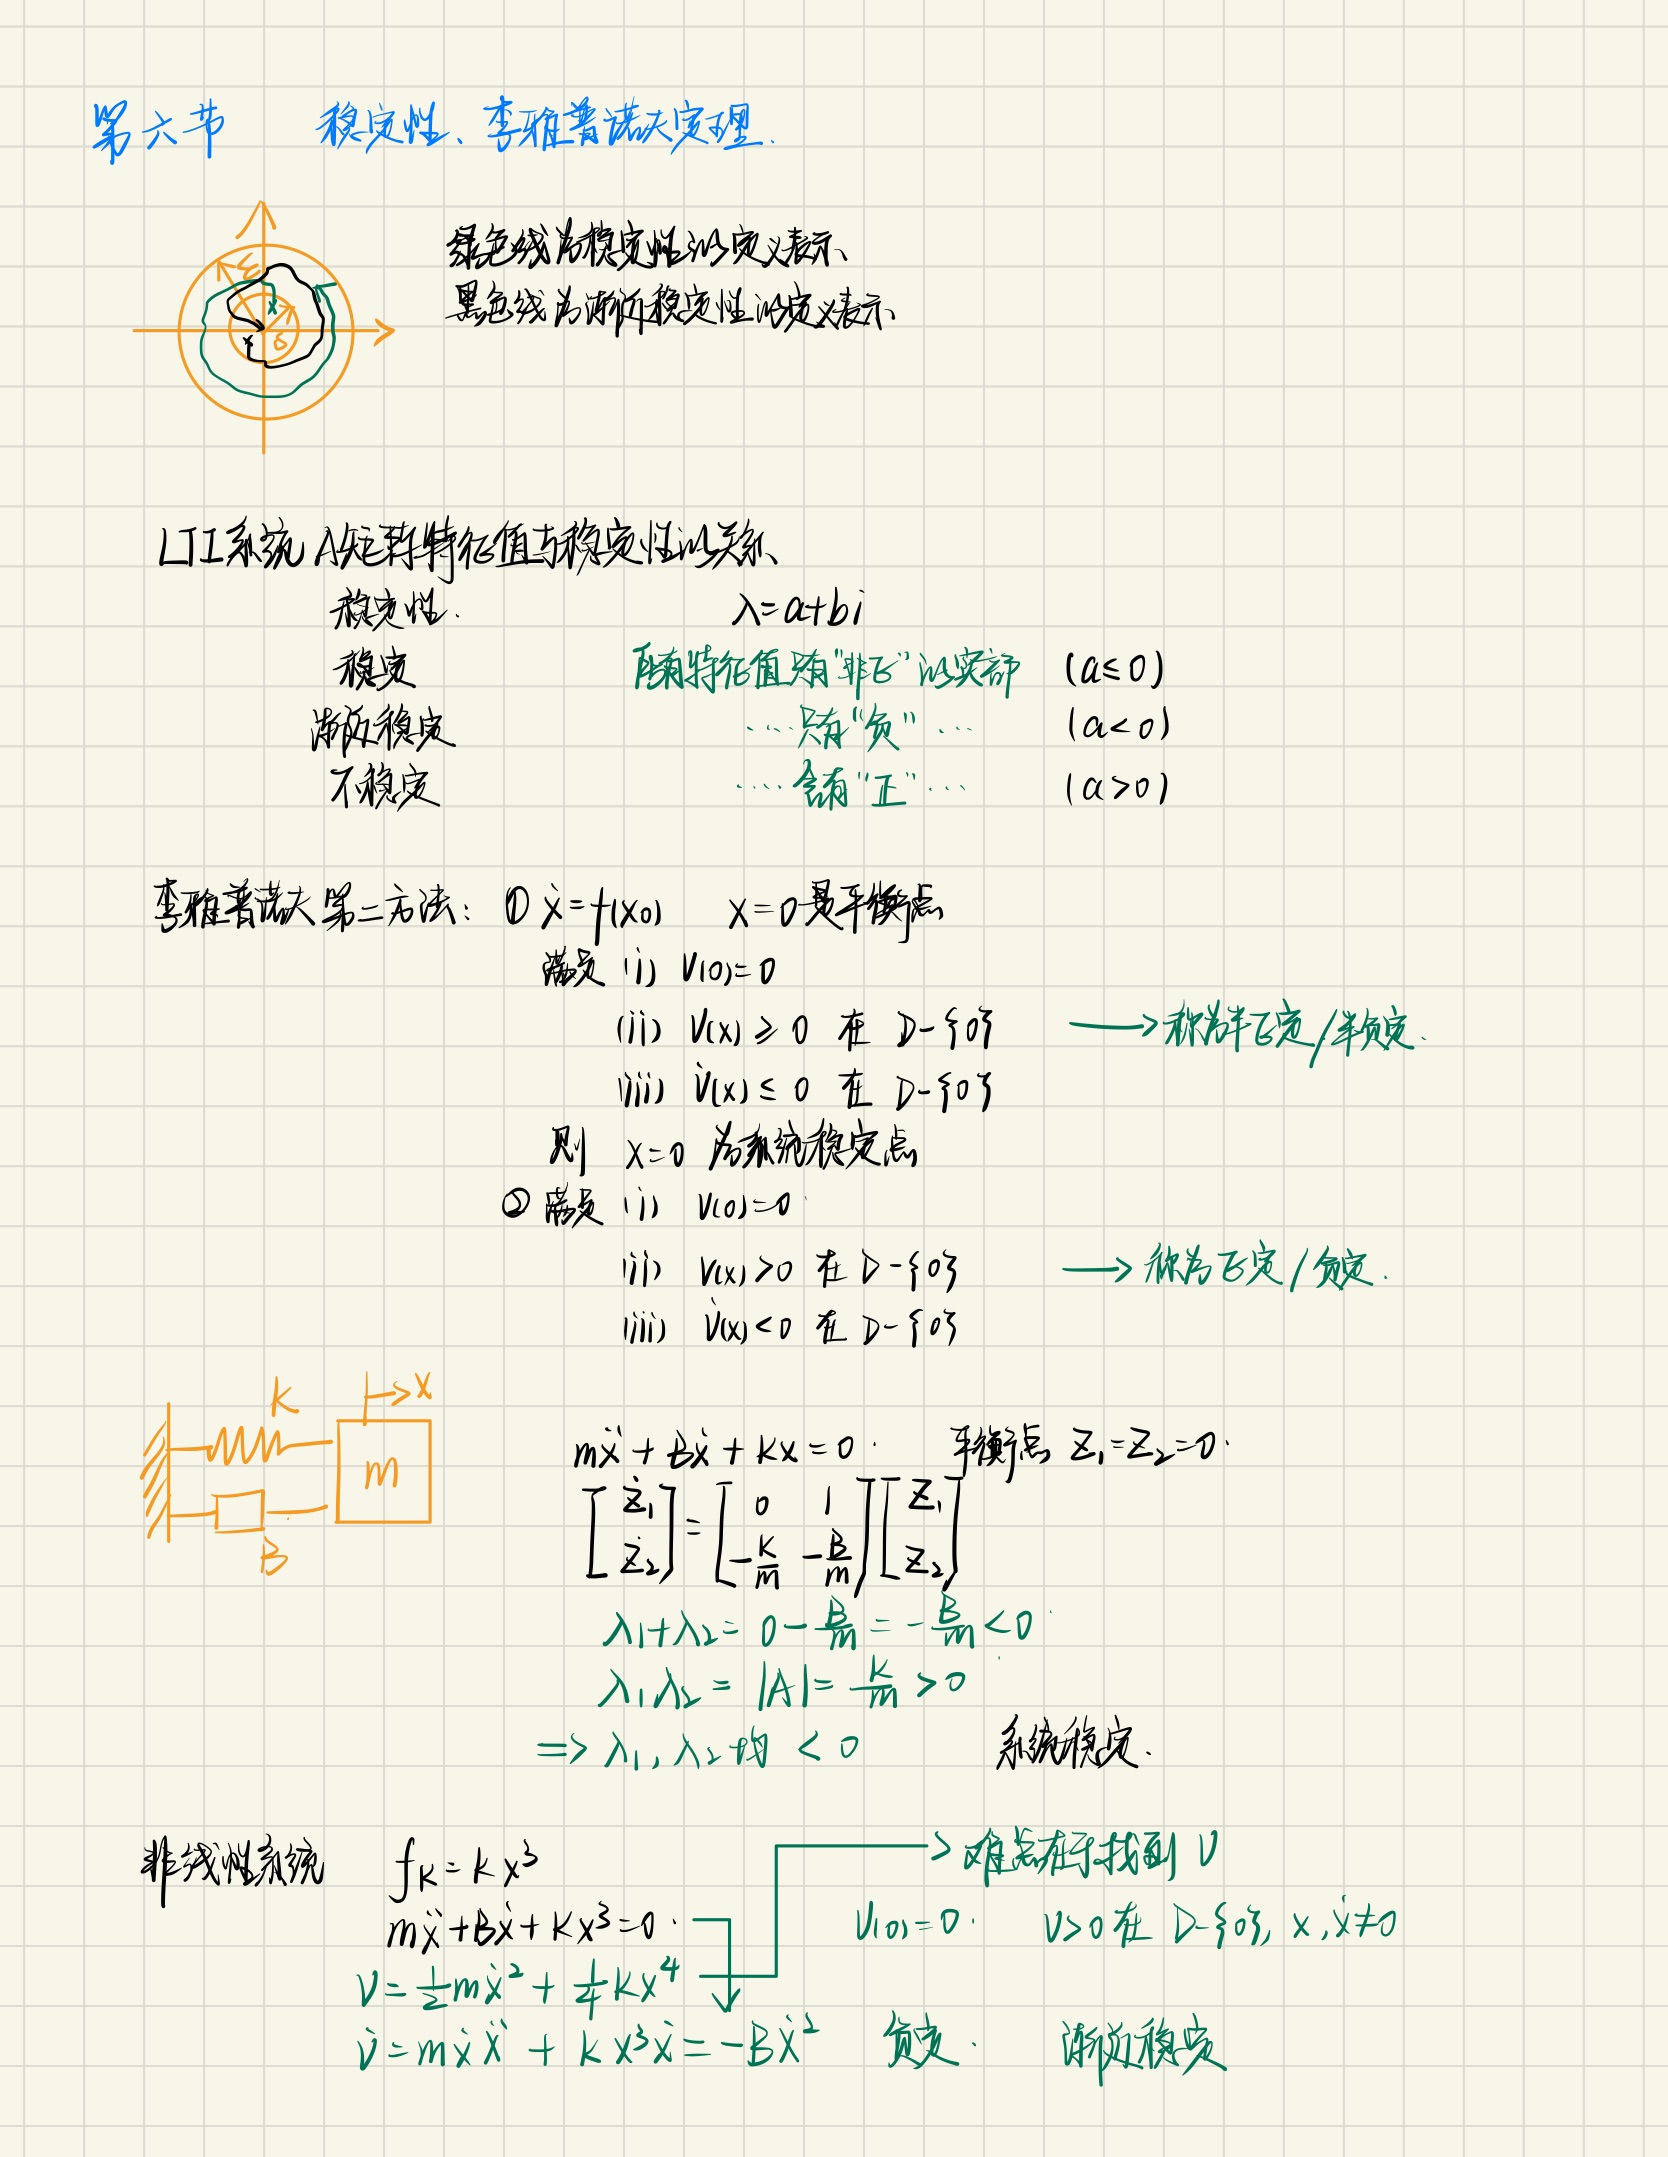 第六节 稳定性、李雅普诺夫定理.
ε
x
x
δ
绿色线为稳定性的定义表示
黑色线为渐近稳定性的定义表示
LTI系统A矩阵特征值与稳定性的关系
稳定性. λ=a+bi
稳定 所有特征值只有"非正"的实部 (a≤0)
渐近稳定 ……只有"负"… (a<0)
不稳定 ……含有"正"… (a>0)
李雅普诺夫第二方法: ① ẋ=f(x0) x=0是平衡点
满足 (i) V(0)=0
(ii) V(x)≥0 在 D-{0} → 称为半正定/半负定.
(iii) V̇(x)≤0 在 D-{0}
则 x=0 为系统稳定点
② 满足 (i) V(0)=0
(ii) V(x)>0 在 D-{0} → 称为正定/负定.
(iii) V̇(x)<0 在 D-{0}
K →x
m
B
mẍ+Bẋ+Kx=0. 平衡点 Z₁=Z₂=0.
[Ż₁ Ż₂] = [0 1 -K/m -B/m][Z₁ Z₂]
λ₁+λ₂=0-B/m=-B/m<0
λ₁λ₂=|A|=K/m>0
=>λ₁,λ₂均<0 系统稳定.
非线性系统 fK=Kx³ →难点在于找到V
mẍ+Bẋ+Kx³=0. V(0)=0. V>0 在 D-{0}, x,ẋ≠0
V=½mẋ²+¼Kx⁴
V̇=mẋẍ+Kx³ẋ=-Bẋ² 负定. 渐近稳定